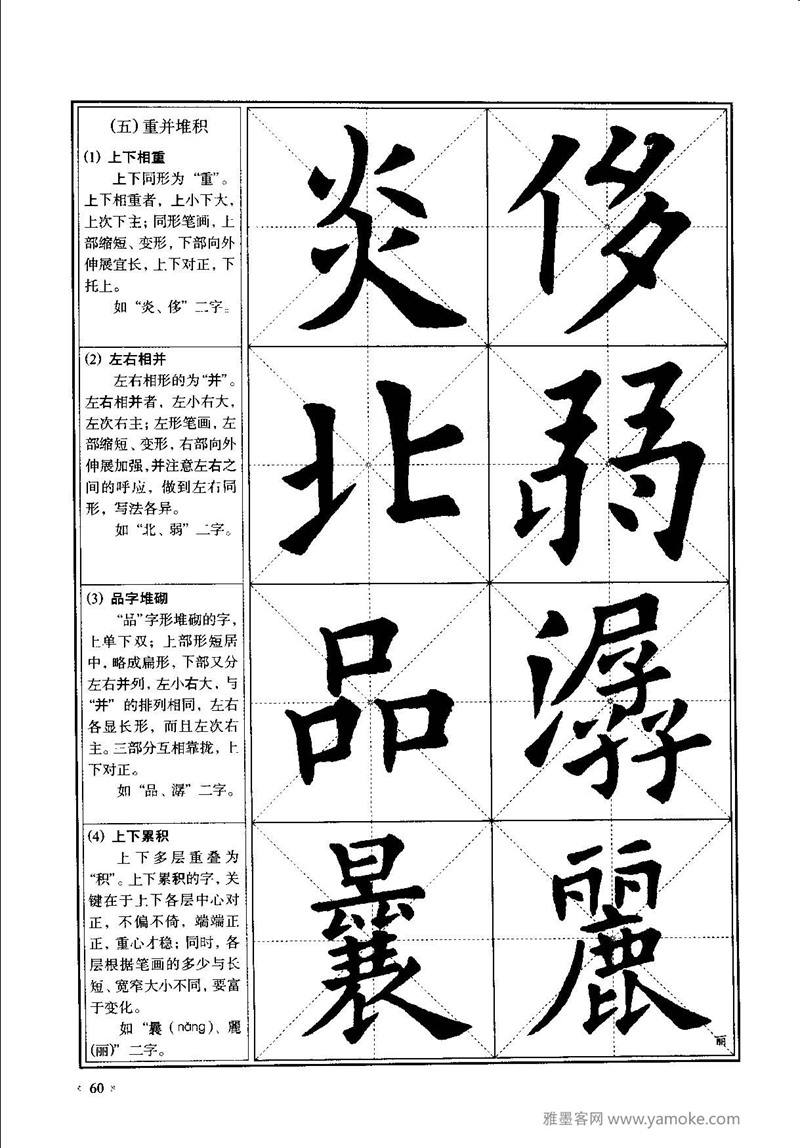 (五)重并堆积
(1) 上下相重
上下同形为“重”。
上下相重者，上小下大，
上次下主；同形笔画，上
部缩短、变形，下部向外
伸展宜长，上下对正，下
托上。
如“炎、侈”二字。
炎 侈
(2) 左右相并
左右相形的为“并”。
左右相并者，左小右大，
左次右主；左形笔画，左
部缩短、变形，右部向外
伸展加强，并注意左右之
间的呼应，做到左右同
形，写法各异。
如“北、弱”二字。
北 弱
(3) 品字堆砌
“品”字形堆砌的字，
上单下双；上部形短居
中，略成扁形，下部又分
左右并列，左小右大，与
“并”的排列相同，左右
各显长形，而且左次右
主。三部分互相靠拢，上
下对正。
如“品、潺”二字。
品 潺
(4) 上下累积
上下多层重叠为
“积”。上下累积的字，关
键在于上下各层中心对
正，不偏不倚，端端正
正，重心才稳；同时，各
层根据笔画的多少与长
短、宽窄大小不同，要富
于变化。
如“曩（nǎng）、麗
(丽)”二字。
曩 麗
丽
60
雅墨客网 www.yamoke.com